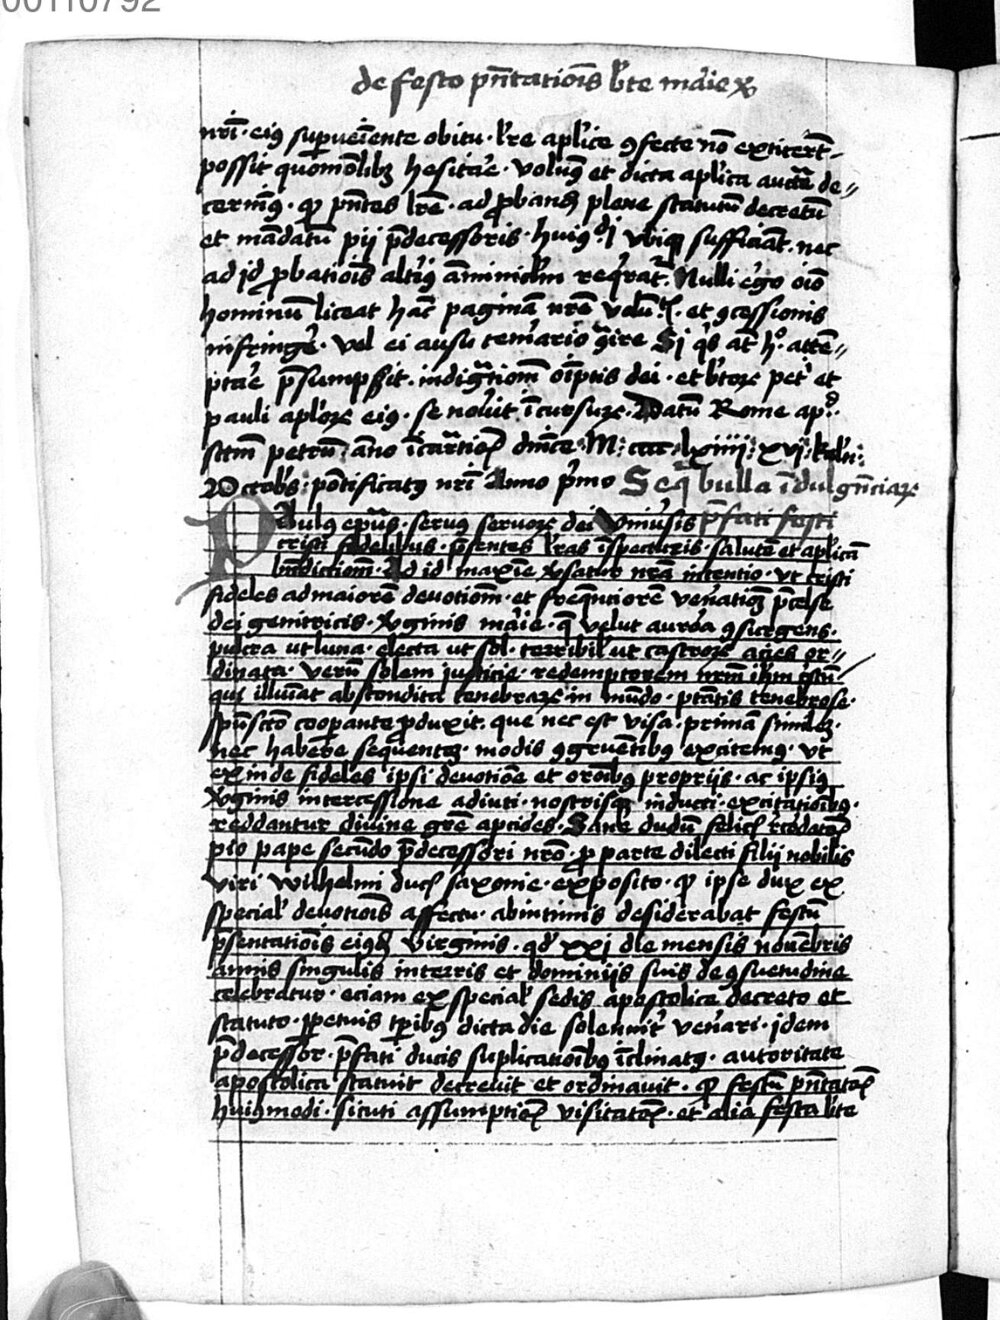 00110792
de festo pn̄tatiois bt̄e marie x̄
nr̄i · eiꝯ supueiente obitu · lr̄e aplice ꝯfecte nō extiterīt
possit quomōlibꝫ hesitari · voluꝯ et dicta aplica auctē de-
cerniꝯ · ꝙ pn̄tes lr̄e · ad ꝓbandū plene statutū decretū
et mādatū pij p̄decessoris · huiꝯmōi vbiqꝫ sufficiāt · nec
ad id ꝓbatiois altiꝯ amminiclm̄ reqrat̄ · Nulli ergo oīo
hominū liceat hāc paginā nr̄e volūt · et ꝯcessionis
infringe · vel ei ausu temerario ꝯire Si q̄s at̄ hº · attē-
ptare p̄sumpserit · indignatiom̄ oīptis dei · et btōꝝ petri et
pauli aplōꝝ eiꝯ · se nouit īcursuꝝ · Datū Rome apd̄
sctm̄ petrū · āno īcarnatiois dn̄ice · M : cccc · lxiiii : xvj · kaln̄ :
Octobs̄ : pōtificatꝯ nr̄i Anno pͥmo Seqͣ bulla īdulgēn̄ciaꝝ
Paulꝯ ep̄us · seruꝯ seruoꝝ dei Vniuersis p̄fati festi
cristi fidelibus · p̄sentes lr̄as īspecturis · salutē et aplicā
bn̄dictiom̄ · Ad id maxīe v̄satur nr̄a intentio · vt cristi
fideles ad maiorē deuotiom̄ · et freqn̄tiorē venerationē p̄celse
dei genitricis · v̄ginis marie · q̄ velut aurora ꝯsurgens ·
pulcra ut luna · electa ut sol · terribil̄ ut castroꝝ acies or-
dinata · verū solem iusticie · redemptorem nr̄m ih̄m cristū-
qui illuīat abscondita tenebraꝝ in mūdo · ptātis tenebrose ·
spūscto cooperante ꝓduxit · que nec est visa · primā similē ·
nec habere sequentem · modis ꝯgruētibꝯ excitemꝯ · vt
exinde fideles ipsi deuotiōe et oroibꝯ proprijs · ac ipsiꝯ
v̄ginis intercessione adiuti · nostrisqꝫ inducti · excitatioibꝯ ·
reddantur diuine grē apciores · Sane dudū felicis rcordatois
pio pape secūdo p̄decessori nr̄o · ꝑ parte dilecti filii nobilis
viri wilhelmi ducis saxonie · exposito · ꝙ ipse dux ex
special̄ deuotiois affectu · ab intimis desiderabat festū
p̄sentatiois eiꝯdē virginis · qd̄ xxj die mensis nouēbris
annis singulis in terris et dominijs suis de ꝯsuetudine
celebratur · eciam ex special̄ sedis apostolice decreto et
statuto · ꝑpetuis tp̄ibꝯ dicta die solenniter̄ venerari · jdem
p̄decessor · p̄fati ducis suplicatioibꝯ īclinatꝯ · autoritate
apostolica statuit decreuit et ordinauit · ꝙ festū pn̄tatois
huiꝯmodi · sicuti assumptiois visitatois · et alia festa bt̄e